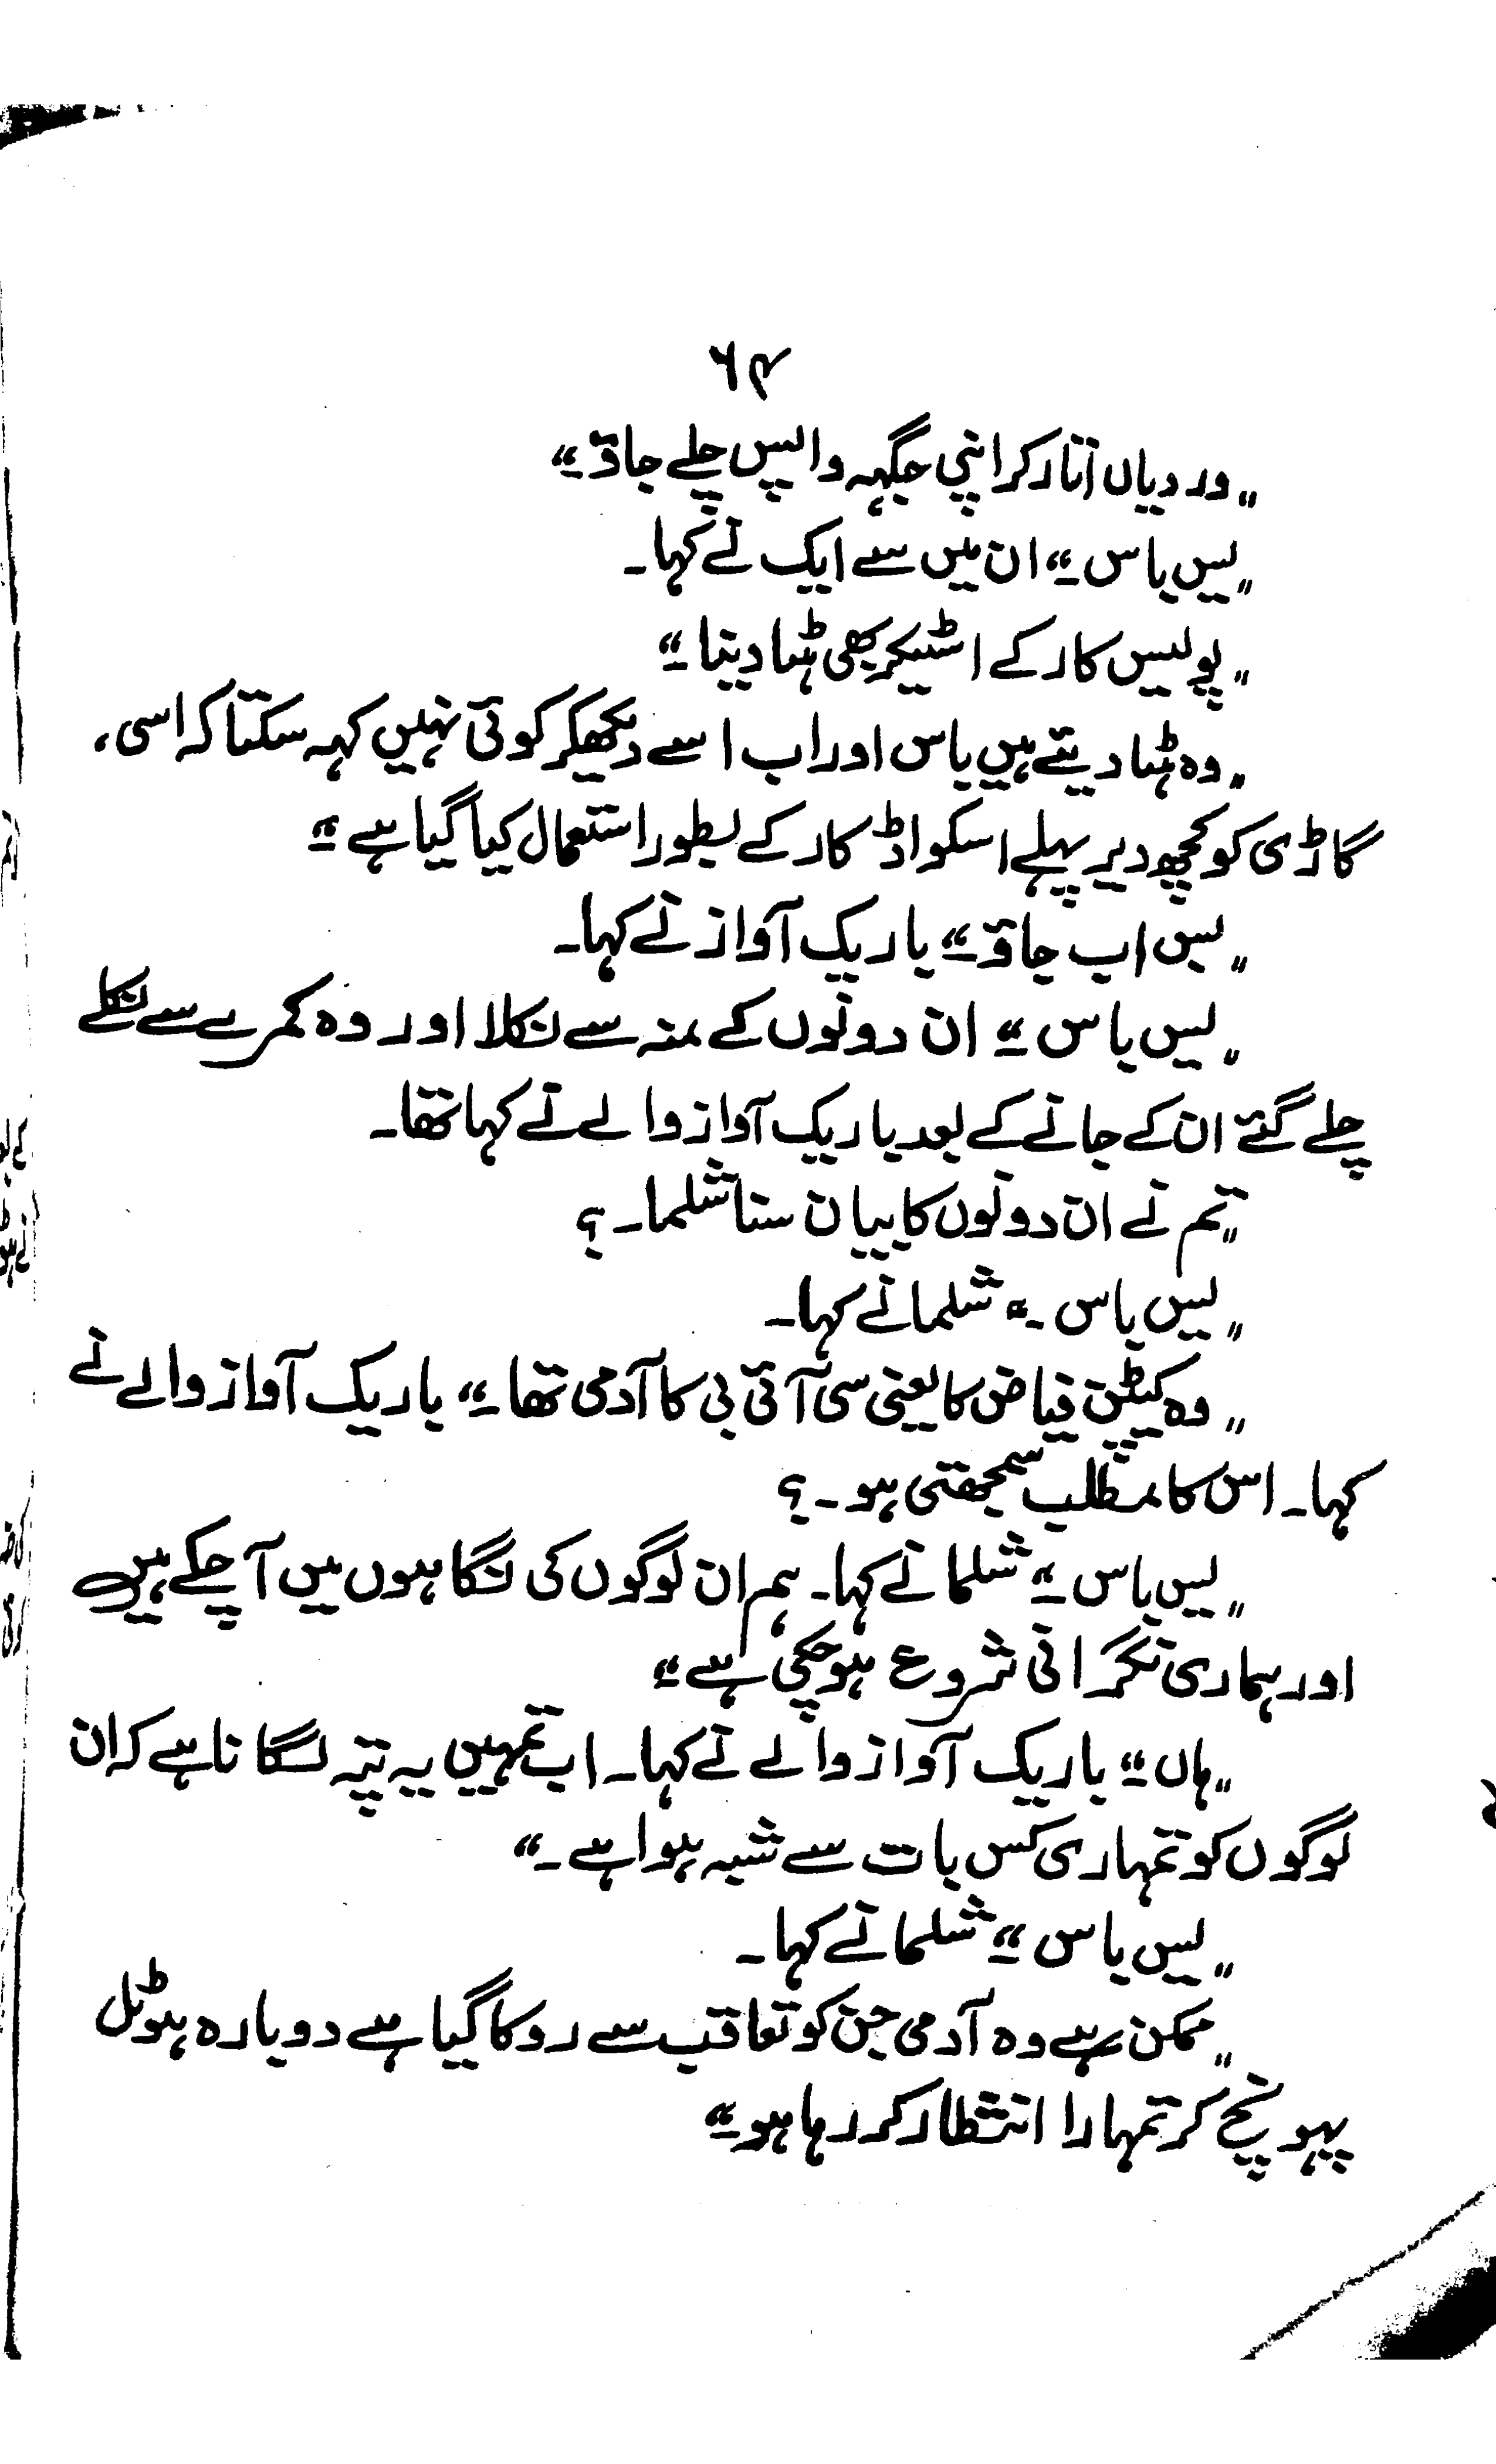 ۶۴
"وردیاں اتار کر اپنی جگہہ واپس چلے جاؤ۔"
"یس باس۔" ان میں سے ایک نے کہا۔
"پولیس کار کے اسٹیکر بھی ہٹا دینا۔"
"وہ ہٹا دیتے ہیں باس اور اب اسے دیکھکر کوئی نہیں کہہ سکتا کہ اسی،
گاڑی کو کچھ دیر پہلے اسکواڈ کار کے بطور استعمال کیا گیا ہے۔"
"بس اب جاؤ۔" باریک آواز نے کہا۔
"یس باس۔" ان دونوں کے منہ سے نکلا اور وہ کمرے سے نکلے
چلے گئے ان کے جانے کے بعد باریک آواز والے نے کہا تھا۔
"تم نے ان دونوں کا بیان سنا شلما۔؟
"یس باس۔" شلما نے کہا۔
"وہ کیپٹن فیاض کا یعنی سی آئی بی کا آدمی تھا۔" باریک آواز والے نے
کہا۔ اس کا مطلب سمجھتی ہو۔؟
"یس باس۔" شلما نے کہا۔ ہم ان لوگوں کی نگاہوں میں آ چکے ہیں
اور ہماری نگرانی شروع ہو چکی ہے۔"
"ہاں۔" باریک آواز والے نے کہا۔ اب تمہیں یہ پتہ لگانا ہے کہ ان
لوگوں کو تمہاری کس بات سے شبہ ہوا ہے۔"
"یس باس۔" شلما نے کہا۔
"ممکن ہے وہ آدمی جن کو تعاقب سے روکا گیا ہے دوبارہ ہوٹل
پہونچ کر تمہارا انتظار کر رہا ہو۔"